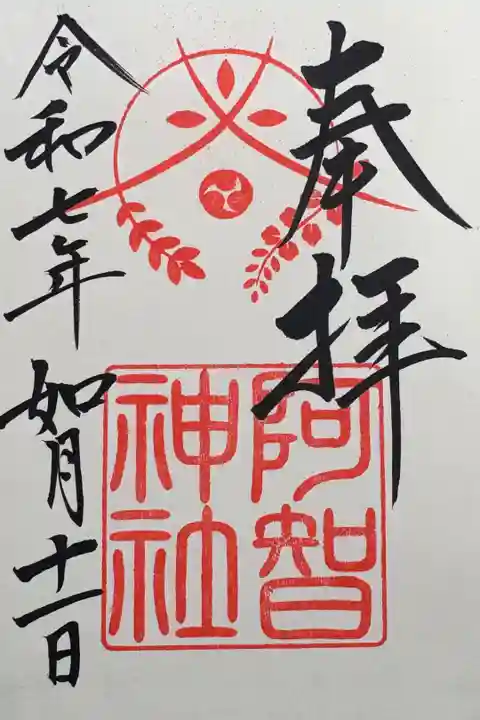 奉拝
阿智
神社
令和七年 如月十一日